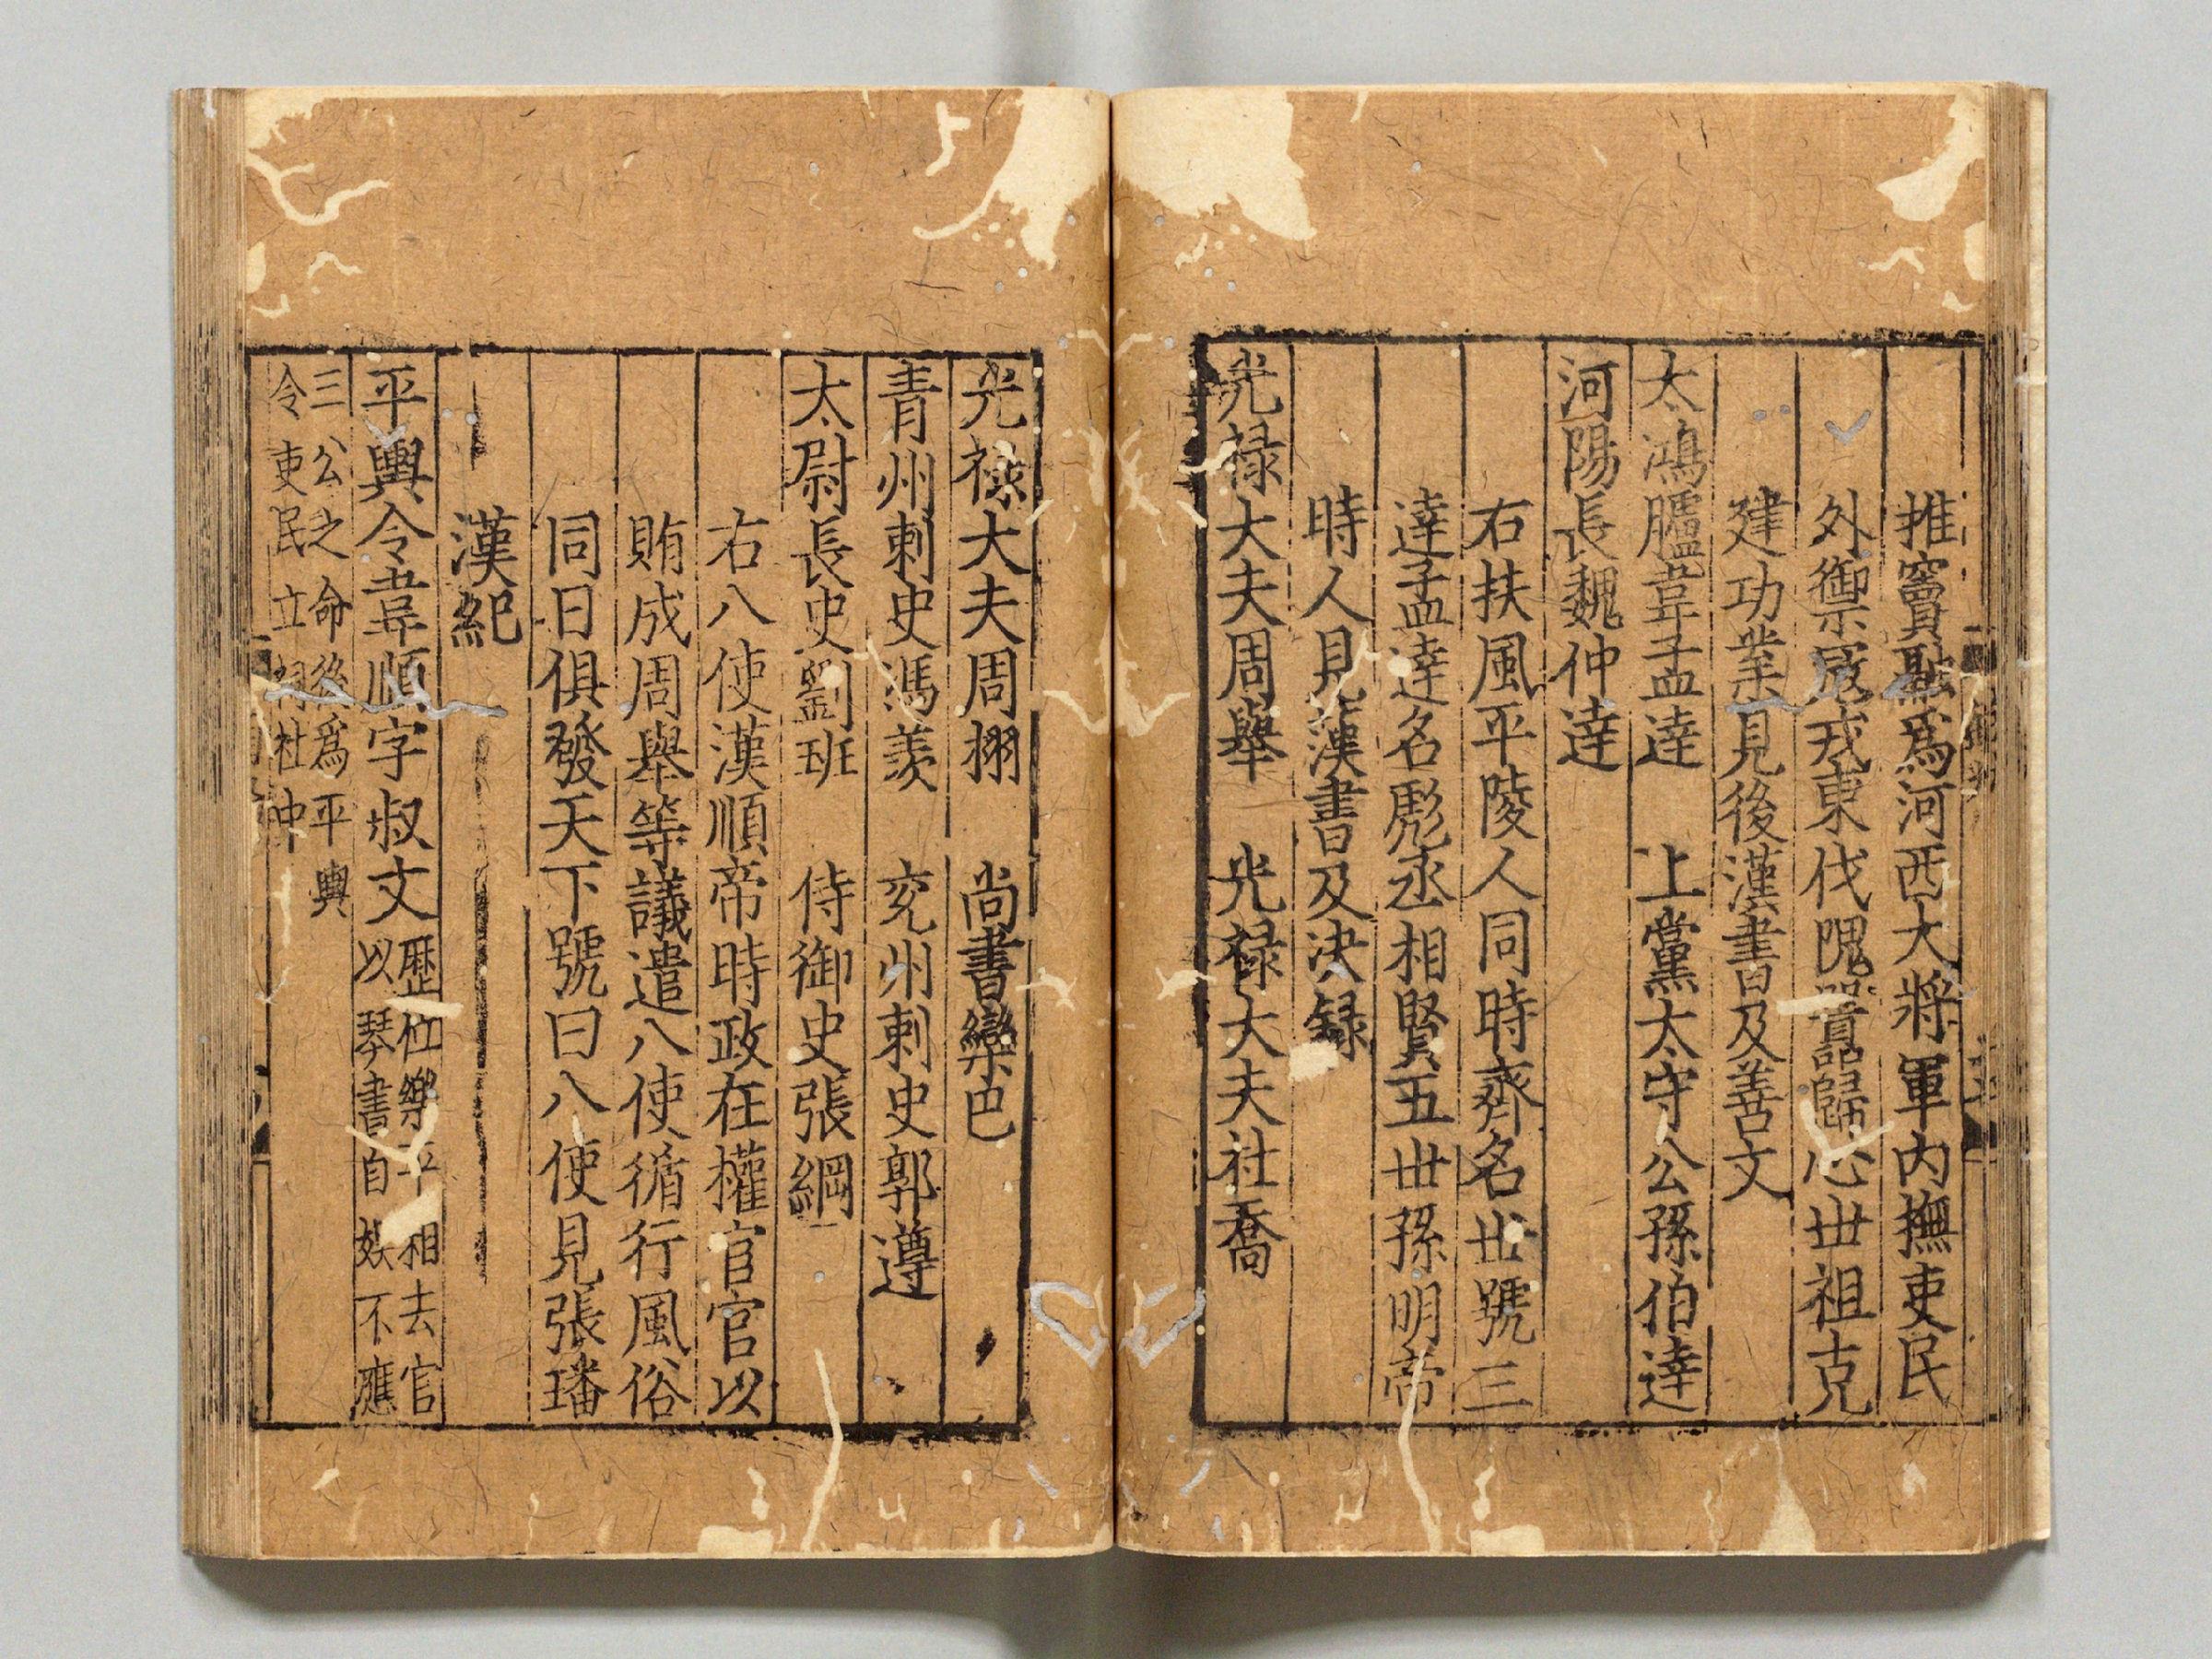 推竇融爲河西大將軍内撫吏民
外禦寇戎東伐隗囂歸心丗祖克
建功業見後漢書及善文
太鴻臚韋孟達　上黨太守公孫伯達
河陽長魏仲達
右扶風平陵人同時齊名丗號三
達孟達名彪丞相賢五丗孫明帝
時人見漢書及決録
光禄大夫周舉　光禄大夫杜喬
光禄大夫周栩　尚書欒巴
青州刺史馮羨　兖州刺史郭遵
太尉長史劉班　侍御史張綱
右八使漢順帝時政在權官官以
賄成周舉等議遣八使循行風俗
同日俱發天下號曰八使見張璠
漢紀
平輿令韋順字叔文歷位樂平相去官
以琴書自娱不應
三公之命後爲平輿
令吏民立祠社中